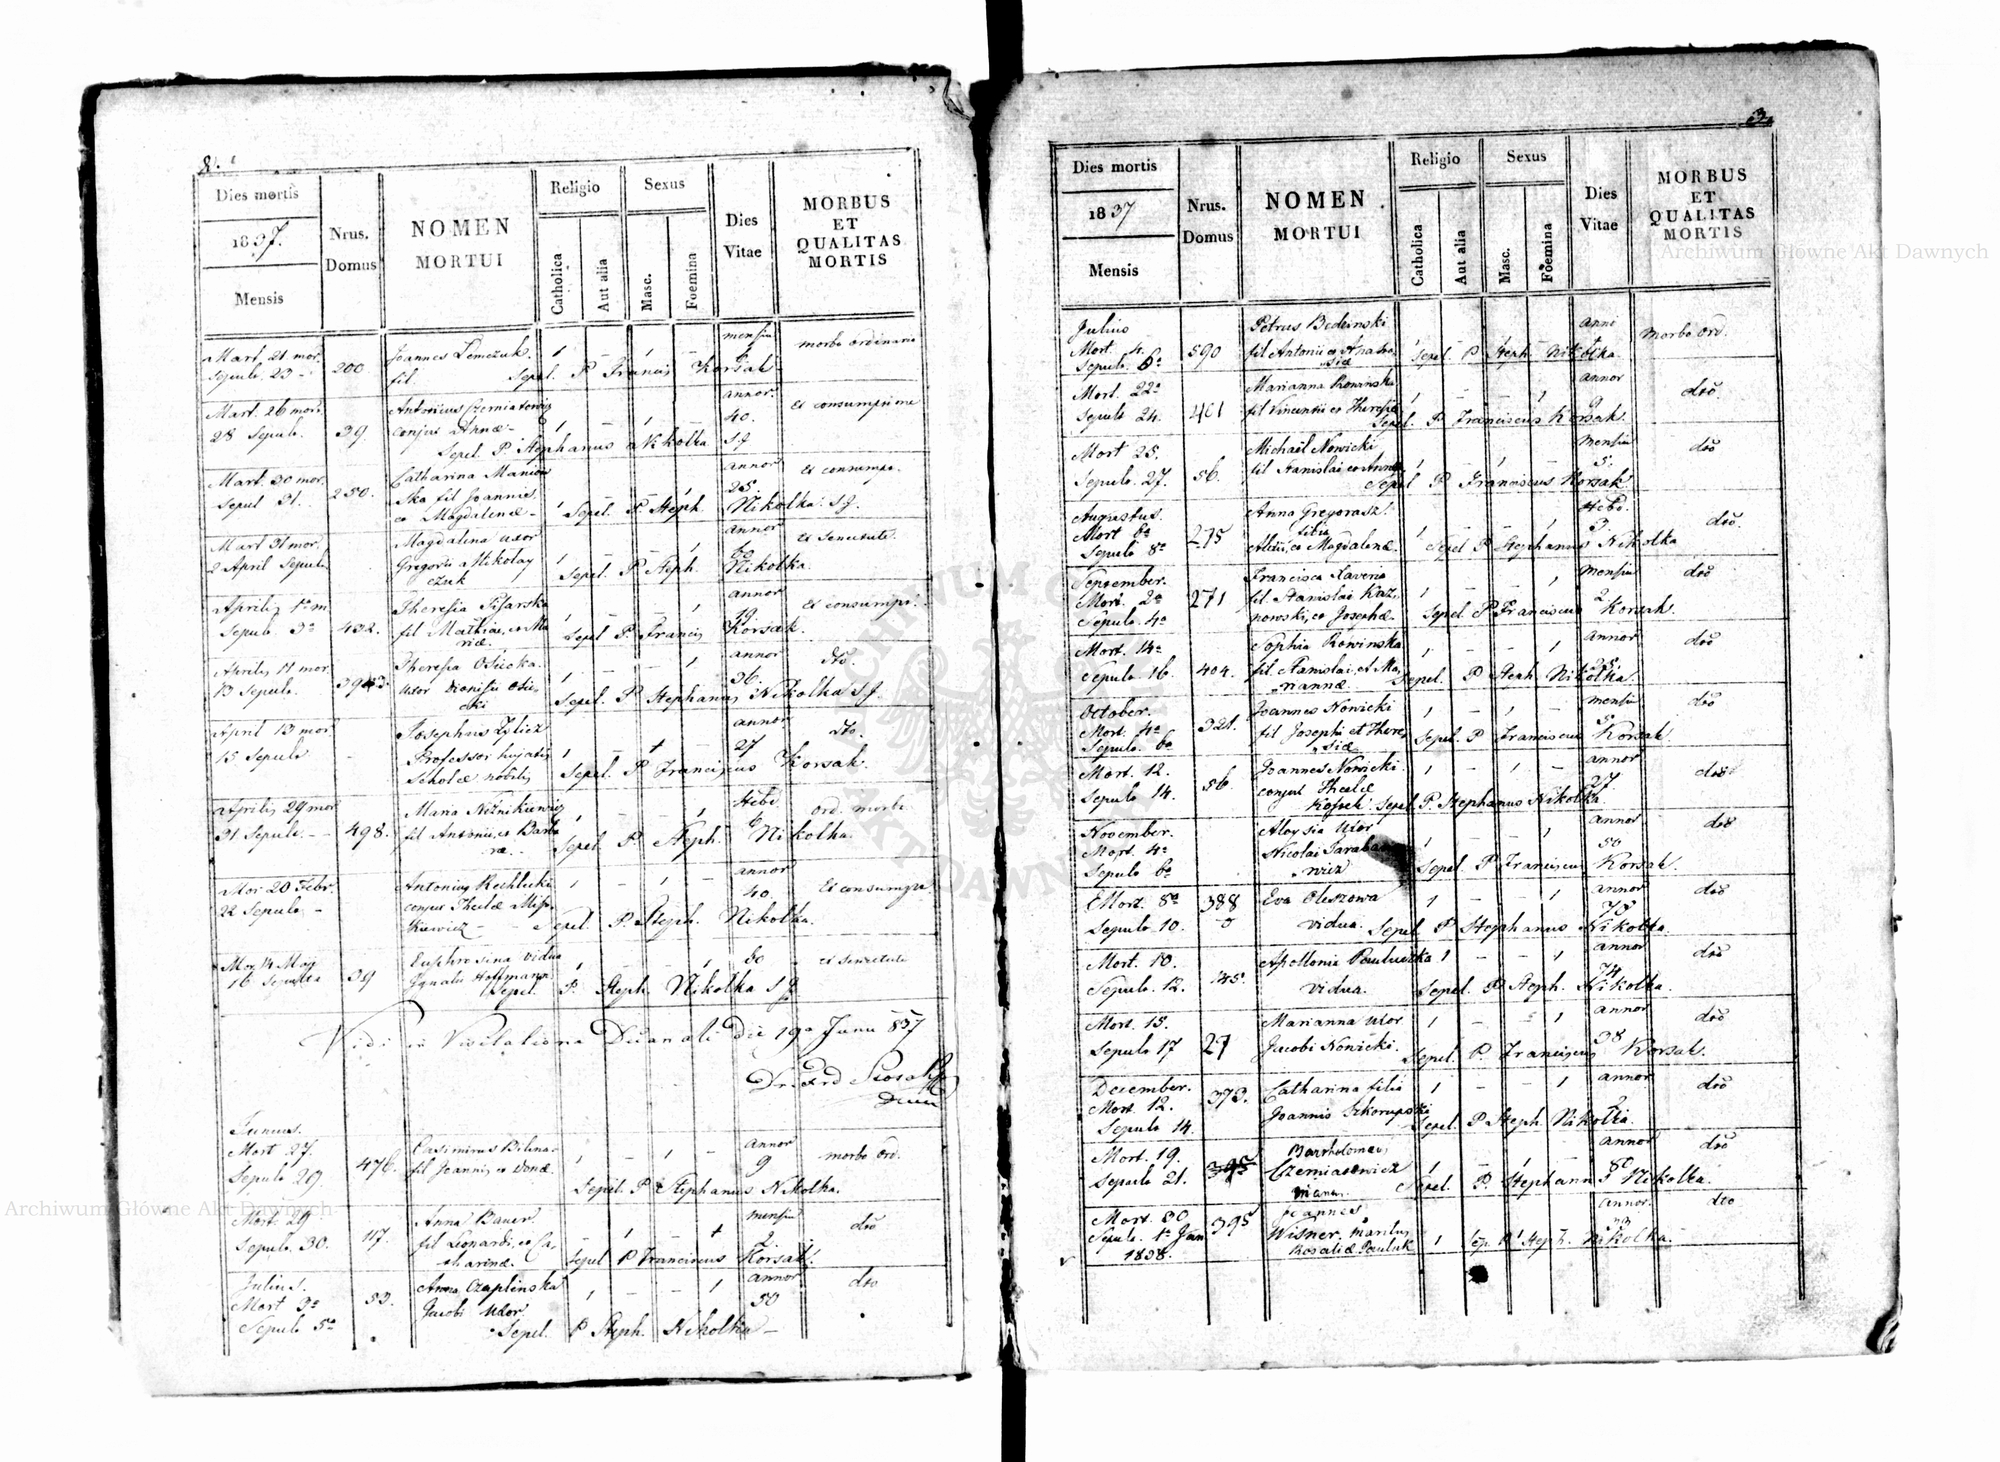 8.
Dies mortis
1837.
Mensis
Nrus.
Domus
NOMEN
MORTUI
Religio
Catholica
Aut alia
Sexus
Masc.
Foemina
Dies
Vitae
MORBUS
ET
QUALITAS
MORTIS
Mart. 21 mor.
Sepult. 23 -
200.
Joannes Lemczuk.
fil Sepel. P Francis Korsak
mensiu
6
morbo ordinario
Mart. 26 mor.
28 Sepult.
39.
Antonius Czerniatowicz
conjux Annae -
Sepel. P. Stephanus Nikolka SJ
annor.
40.
Mart. 30 mor.
Sepul 31.
250.
Catharina Manion
ska fil Joannis
et Magdalenae -
Sepel. P. Steph. Nikolka. S.J.
annor
25.
et consump.
Mart 31 mor.
2 April Sepult.
Magdalena uxor
Gregorii Mikolay
czuk
Sepel. P Steph. Nikolka.
annor
et senectute.
Aprilis 1a m.
Sepult. 3a
432.
Theresia Pisarska
fil Mathiae, et Ma
riae
Sepel P Francis Korsak.
annor
19
et consumpt.
Aprilis 11 mor.
13 Sepult.
Theresia Osiecka.
uxor Dionisii Osie
cki
Sepel. P Stephanus Nikolka S.J.
annor
36.
dto.
April 13 mor
15 Sepult
Josephus Zylicz
Professor hujatis
Scholae nobilis
Sepel. P. Franciscus Korsak.
annor
27
dto.
Aprilis 29 mor
31 Sepult. - -
498.
Maria Niznikiewicz
fil Antonii, et Barba
rae. -
Sepel P Steph. Nikolka.
Hebd.
6
ord. morbo
Mor 20 Febr.
22 Sepult. -
Antonius Rechlicki
conjux Theclae Miss
kiewicz -
Sepel. P. Steph. Nikolka.
annor
40.
et consumpt.
Mor 14 Maj
16 Sepulta
39
Euphrosina vidua
Ignatii Hoffmann
Sepel. P. Steph. Nikolka S J.
80
et senectute
Vidi in Visitatione Decanali die 19a Junii 837
Junius.
Mort 27.
Sepult 29.
476.
Casimirus Bilina
fil Joannis et Donae.
Sepel. P Stephanus Nikolka.
annor
9
morbo ord.
Mort. 29
Sepult. 30.
117.
Anna Bauer.
fil Leonardi, et Ca
tharinae.
Sepel P Franciscus Korsak.
mensiu
2.
dto
Julius.
Mort 3a
Sepult 5a
53.
Anna Czaplinska
Jacobi uxor
Sepel. P Steph. Nikolka -
annor
50
dto
3.
Dies mortis
1837
Mensis
Nrus.
Domus
NOMEN
MORTUI
Religio
Catholica
Aut alia
Sexus
Masc.
Foemina
Dies
Vitae
MORBUS
ET
QUALITAS
MORTIS
Julius
Mort. 4.
Sepult. 6a
590
Petrus Bedrinski
fil Antonii et Anasta
siae
Sepel. P Steph. Nikolka.
anni
Morbo ord.
Mort. 22a
Sepult 24.
401
Marianna Rowinska
fil Vincentii et Theresiae
Sepel. P. Franciscus Korsak.
annor
9
dto
Mort 25.
Sepult. 27.
56.
Michael Nowicki
fil Stanislai et Annae
Sepel P Franciscus Korsak
mensiu
5.
dto
Augustus.
Mort 6a
Sepult 8a
275
Anna Gregorasz.
filia
Alexii, et Magdalenae.
Sepel P Stephanus Nikolka
Hebd.
3.
dto.
September.
Mort. 2a
Sepult. 4a
271
Francisca Xaveria
fil. Stanislai Kaz,
nowski, et Josephae.
Sepel P Franciscus Korsak.
mensiu
2
dto
Mort. 14a
Sepult 16.
404.
Sophia Rowinska
fil. Stanislai, et Ma,
riannae.
Sepel. P Steph Nikolka.
annor
dto
October.
Mort. 4a
Sepult. 6a
321.
Joannes Nowicki
fil Josephi et There
siae
Sepel. P Franciscus Korsak.
mensiu
5
dto
Mort. 12.
Sepult 14.
56.
Joannes Nowicki.
conjux Theclae
Sepel. P. Stephanus Nikolka
annor
27
dto
November.
Mort. 4a
Sepult 6a
Aloysia uxor
Nicolai
wicz
Sepel. P Franciscus Korsak.
annor
50
dto
Mort. 8a
Sepult 10.
388
Eva Oleszowa
vidua
Sepel P Stephanus Nikolka.
annor
78
dto
Mort. 10.
Sepult. 12.
45.
Apollonia Pawluczka
vidua.
Sepel. P Steph. Nikolka.
annor
74
dto
Mort. 15.
Sepult 17
27
Marianna uxor
Jacobi Nowicki.
Sepel. P. Franciscus Korsak.
annor
38
dto
December.
Mort. 12.
Sepult 14.
373.
Catharina filia
Joannis Skorupski
Sepel. P Steph Nikolka.
annor
dto
Mort. 19.
Sepult 21.
395
Bartholomeus
Czerniatowicz
Sepel. P. Stephanus Nikolka.
annor
80
dto
Mort. 30
Sepult. 1a Jan
1838.
395
Joannes
Wisner. maritus
Rosaliae Pauluk
Sep. P Steph. Nikolka.
annor.
33
dto
Archiwum Główne Akt Dawnych
Archiwum Główne Akt Dawnych
ARCHIWUM GŁÓWNE AKT DAWNYCH